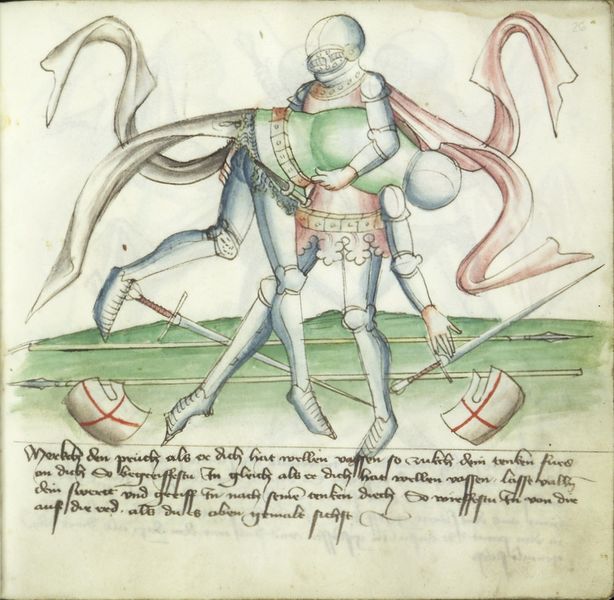 26
Merckch den pruch als er dich hat wellen vassen so zukch dein tenken fues
an dich So begreiffestu In gleich als er dich hat wellen vassen lasse valln
dein swertt vnd greiff In nach seinē tenken diech So wirffestu In von dir
auf die erd als du es oben gemalt sichst